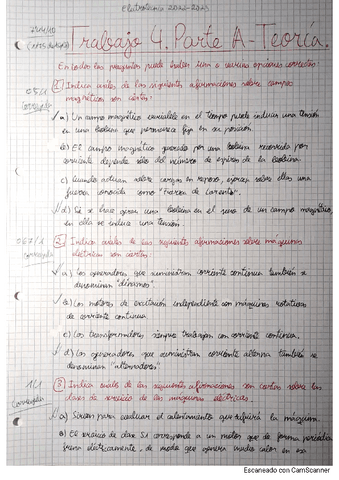 Electrotecnia 2022-2023
Trabajo 4. Parte A-Teoría.
En todas las preguntas puede haber una o varias opciones correctas:
1 Indica cuáles de las siguientes afirmaciones sobre campo
magnéticos son ciertas:
a) Un campo magnético variable en el tiempo puede inducir una tensión
en una bobina que permanezca fija en su posición.
b) El campo magnético generado por una bobina recorrida por
corriente depende sólo del número de espiras de la bobina.
c) Cuando actúan sobre cargas en reposo, ejercen sobre ellas una
fuerza conocida como "Fuerza de Lorentz".
d) Si se hace girar una bobina en el seno de un campo magnético,
en ella se induce una tensión.
2 Indica cuáles de las siguientes afirmaciones sobre máquinas
eléctricas son ciertas:
a) Los generadores que suministran corriente continua también se
denominan "dinamos".
b) Los motores de excitación independiente son máquinas rotativas
de corriente continua.
c) Los transformadores siempre trabajan con corriente continua.
d) Los generadores que suministran corriente alterna también se
denominan "alternadores".
1/1
3 Indica cuáles de las siguientes afirmaciones son ciertas sobre las
clases de servicio de las máquinas eléctricas.
a) Sirven para evaluar el calentamiento que sufrirá la máquina.
b) El servicio de clase S1 corresponde a un motor que de forma periódica
frena eléctricamente, de modo que genera mucho calor en su
Escaneado con CamScanner